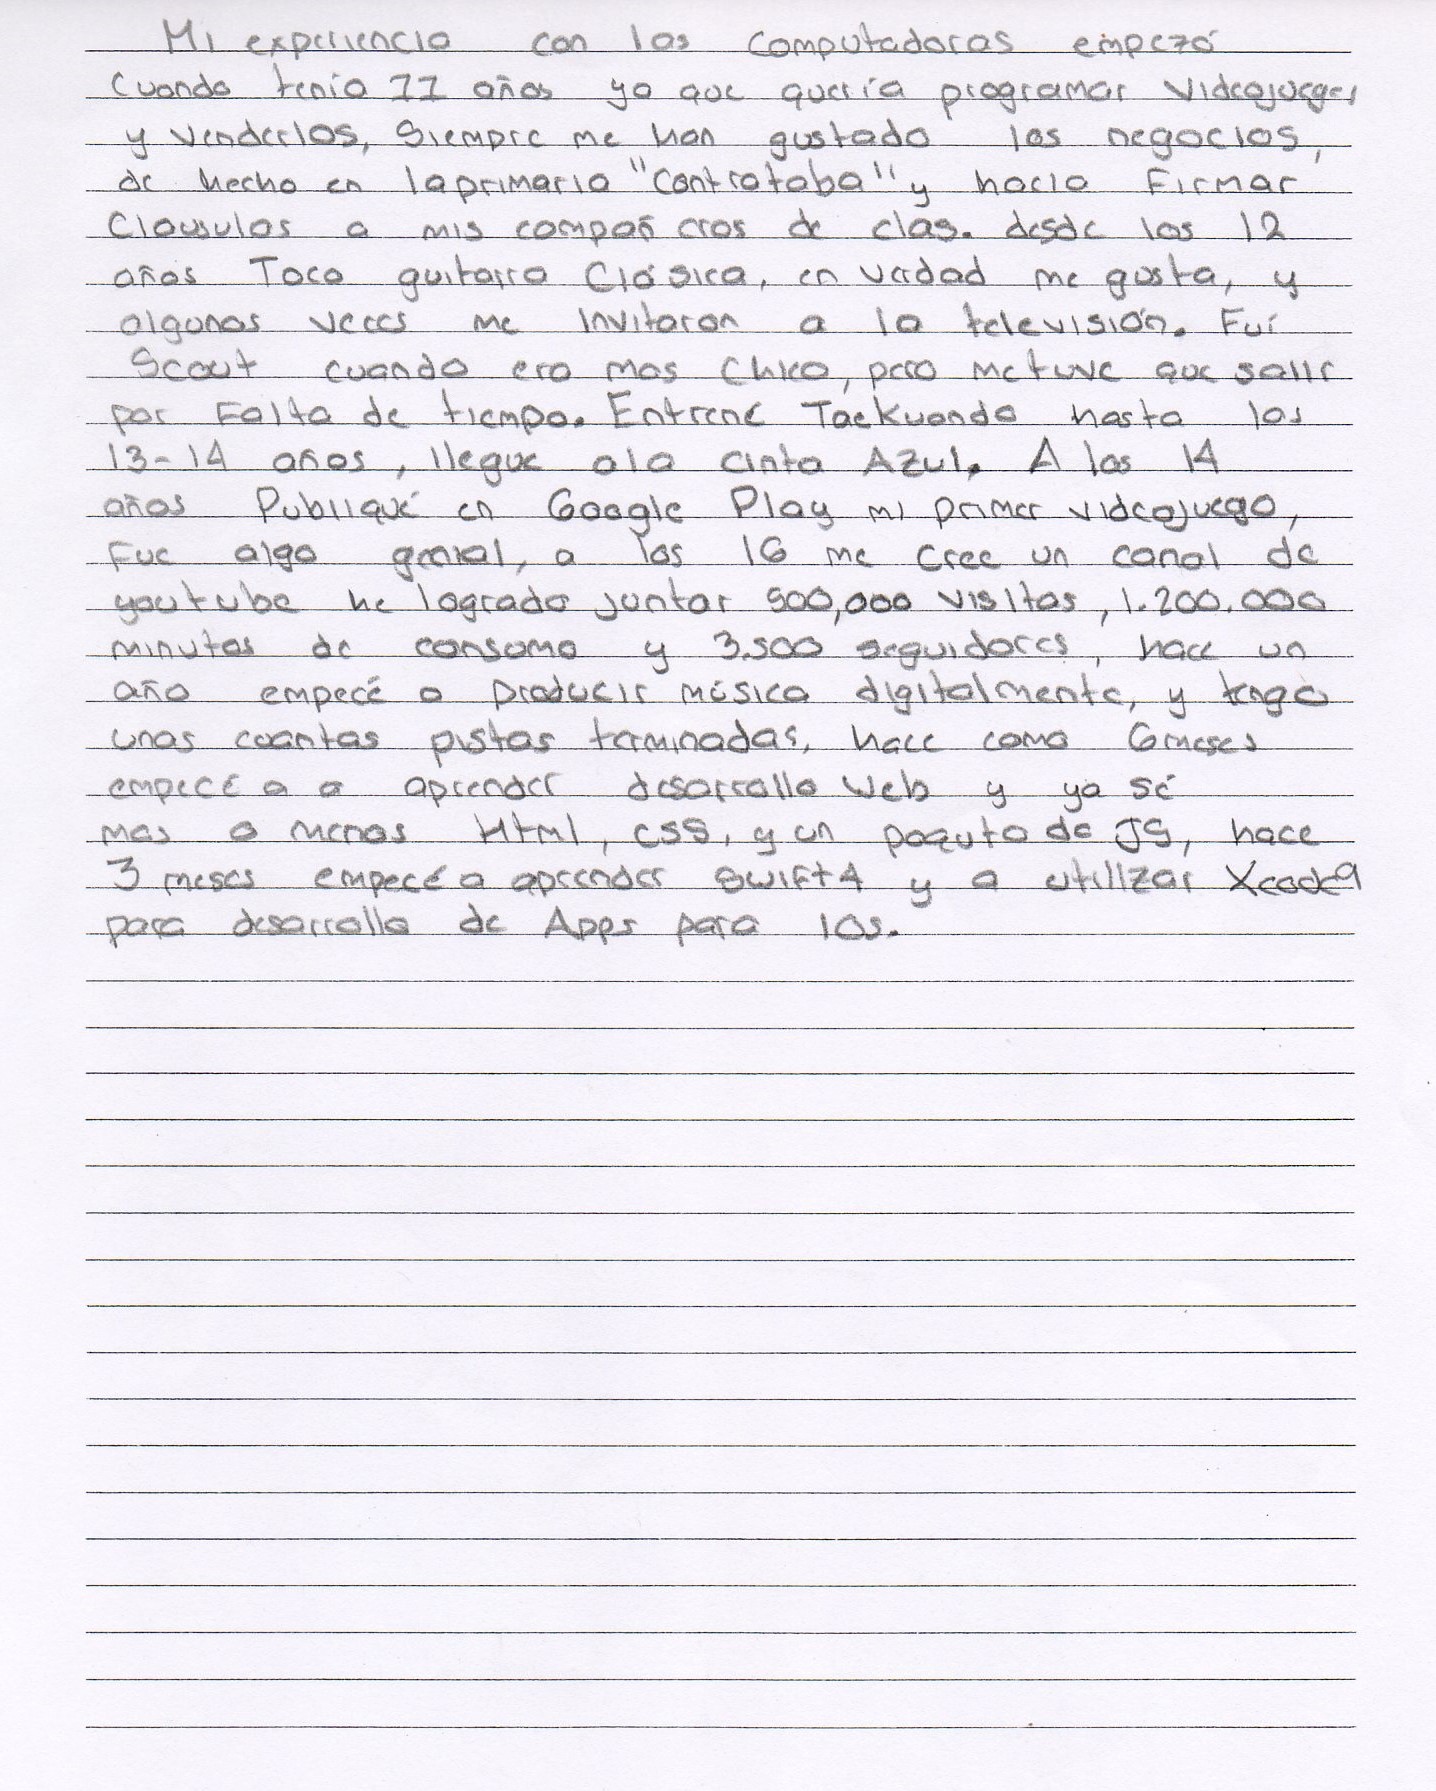 Mi experiencia con las computadoras empezó
Cuando tenía 11 años ya que quería programar videojuegos
y venderlos, Siempre me han gustado los negocios,
de hecho en laprimaria "Contrataba" y hacia Firmar
Clausulas a mis compañ eros de clas. desde los 12
años Toco guitarra Clásica, en verdad me gusta, y
algunas veces me invitaron a la televisión. Fuí
Scout cuando era mas Chico, pero metuve que salir
por Falta de tiempo. Entrené TaeKuondo hasta los
13-14 años, llegue ala cinta Azul. A los 14
años Publiqué en Google Play mi primer videojuego,
Fue algo genial, a los 16 me Cree un canal de
youtube he logrado juntar 500,000 visitas, 1.200.000
minutos de consumo y 3.500 seguidores, hace un
año empecé a producir música digitalmente, y tengo
unas cuantas pistas terminadas, hace como 6meses
empecé a a aprender desarrollo Web y ya sé
mas o menos Html, CSS, y un poquto de JS, hace
3 meses empecé a aprender swift4 y a utilizar Xcode9
para desarrollo de Apps para ios.